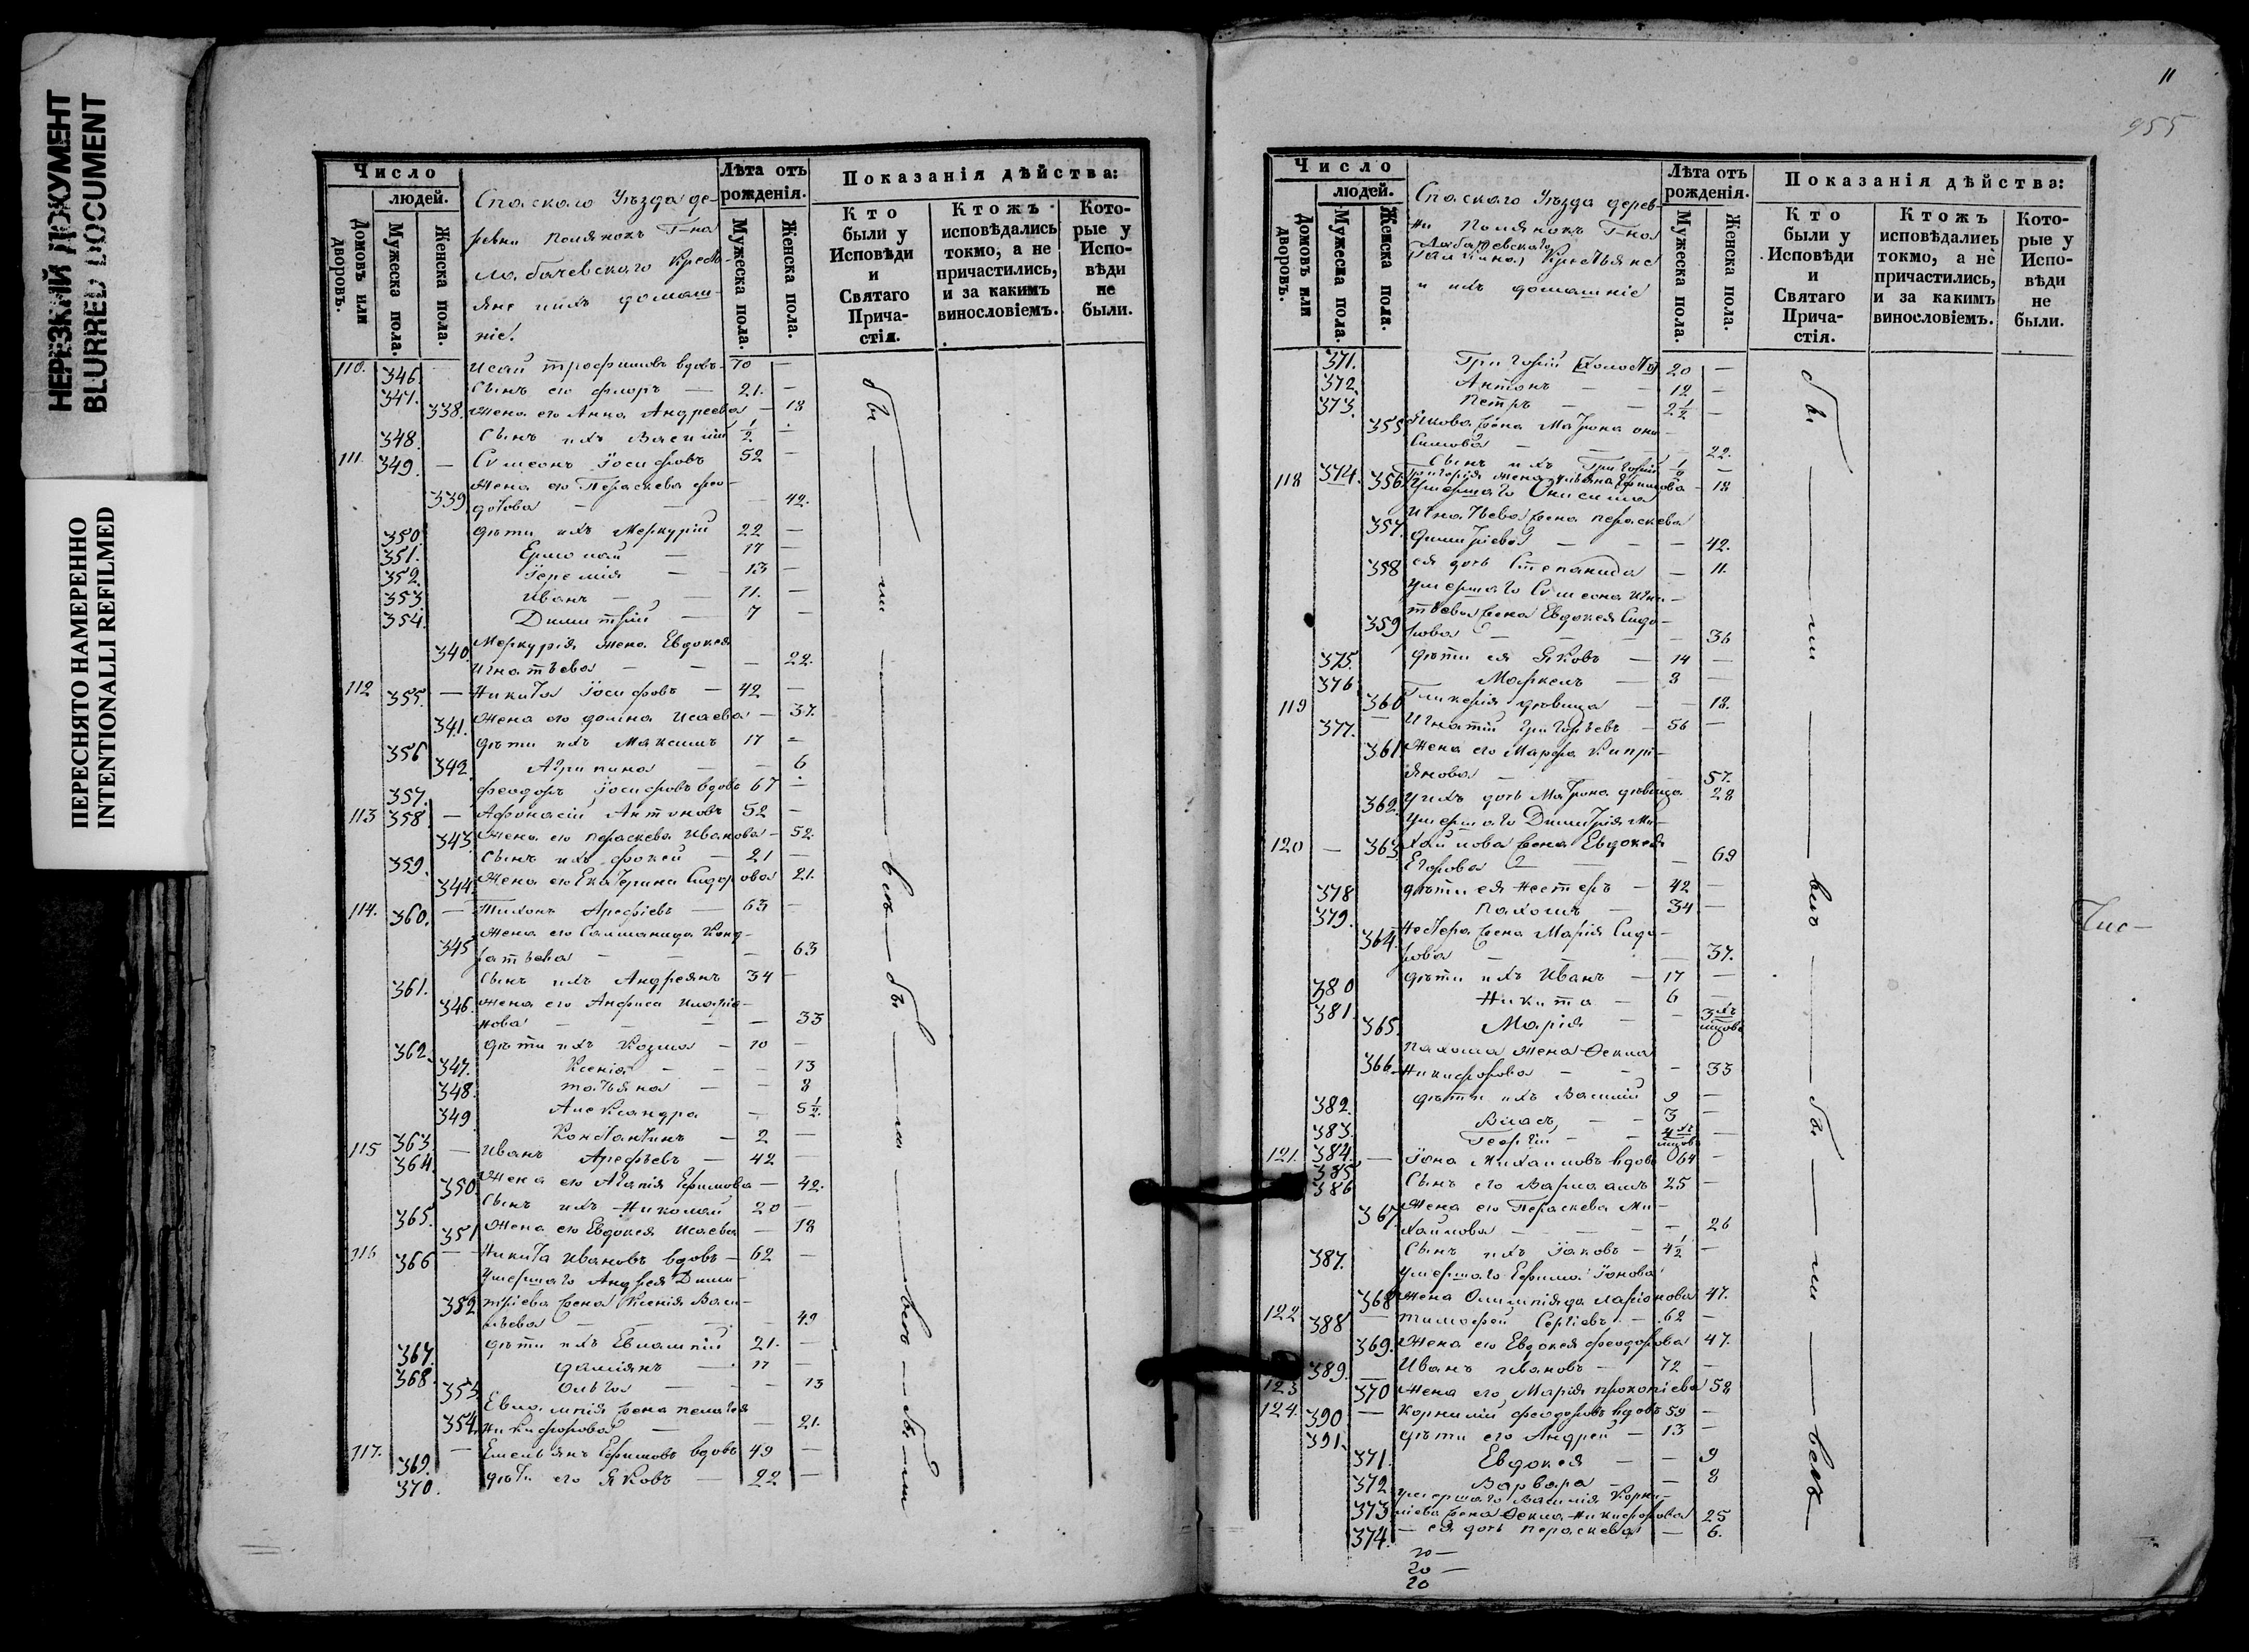 НЕРЕЗКИЙ ДОКУМЕНТ
BLURRED DOCUMENT
ПЕРЕСНЯТО НАМЕРЕННО
INTENTIONALLI REFILMED
Число
людей.
Домовъ или дворовъ.
Мужеска пола.
Женска пола.
Спаского Уѣзда де-
ревни Полянокъ Г-на
крестъ-
яне ихъ домаш-
ніе.
Лѣта отъ рожденія.
Мужеска пола.
Женска пола.
Показанія дѣйства:
Кто были у Исповѣди и Святаго Прича-стія.
Ктожъ исповѣдались токмо, а не причастились, и за какимъ винословіемъ.
Кото-рые у Испо-вѣди не были.
110. 346. — Исай Трофимовъ вдовъ 70 —
347. Сынъ его Флоръ — 21. —
338. Жена его Анна Андреева — 18
348. Сынъ ихъ Василій 1/2 —
111. 349. — Сѵмеонъ Іосифовъ 52 —
Жена его Параскева Фео-
339. дотова — — 42.
350. дѣти ихъ Меркурій 22 —
351. Ермолай — 17 —
352. Іеремія — 13 —
353. Иванъ — 11. —
354. Димитрій — 7 —
340. Меркурія жена Евдокея
Игнатьева — — 22.
112 355. — Никита Іосифовъ — 42 —
341. Жена его Домна Исаева — 37.
356 дѣти ихъ Максимъ 17 —
342. Агрипина — — 6
357. Феодоръ Іосифовъ вдовъ 67 —
113 358. — Афонасій Антоновъ 52 —
343. Жена его Параскева Иванова — 52.
359. Сынъ ихъ Фокей — 21 —
344. Жена его Екатерина Сидорова 21.
114. 360. — Тихонъ Арефіевъ — 63 —
Жена его Саломанида Конд-
345 ратьева — — 63
361. Сынъ ихъ Андреянъ 34 —
346. Жена его Анфиса Иларіо-
нова — — — 33
362. дѣти ихъ Козма — 10 —
347. Ксенія — — 13
348. Татьяна — — 8
349. Александра — 5 1/2
363 Константинъ — 2 —
115 364. — Иванъ Арефьевъ — 42 —
350. Жена его Агапія Ефимова — 42.
365. Сынъ ихъ Николай 20 —
351 Жена его Евдокея Исаева — 18
116 366 — Никита Ивановъ вдовъ — 62 —
Умершаго Андрея Дими-
352. тріева жена Ксенія Васи-
льева — — — 49
367. дѣти ихъ Евлампій 21. —
368. Даміянъ — 17 —
353. Ольга — — 13
Евлампія жена Пелагея
354. Никифорова — — 21.
117. 369. — Емельянъ Ефимовъ вдовъ 49 —
370. дѣти его Яковъ — 22 —
бы
ли
всѣ
бы
ли
всѣ
бы
ли
11
955
Число
людей.
Домовъ или дворовъ.
Мужеска пола.
Женска пола.
Спаского Уѣзда дерев-
ни Полянокъ Г-на
Крестьяне
и ихъ домашніе
Лѣта отъ рожденія.
Мужеска пола.
Женска пола.
Показанія дѣйства:
Кто были у Исповѣди и Святаго Прича-стія.
Ктожъ исповѣдались токмо, а не причастились, и за какимъ винословіемъ.
Кото-рые у Испо-вѣди не были.
371. Григорій 20 —
372. Антонъ — 12 —
373. Петръ — 2 1/2 —
355 Якова жена Матрона Они-
симова — — 22.
374. Сынъ ихъ Григорій 1/2 —
118 356. Григорія жена Ефимова — 18
Умершаго Онисима
Игнатьева жена Параскева
357. Димитріева — — 42.
358 ея дочь Степанида — 11.
Умершаго Сѵмеона Игна-
тьева жена Евдокея Сидо-
359 рова — — 36
375. дѣти ея Яковъ — 14 —
376 Маркелъ — 8 —
119 360 Гликерія дѣвица — 18.
377. Игнатій Григорьевъ — 56 —
361 Жена его Марфа Кипрі-
янова — — 57.
362. У ихъ дочь Матрона дѣвица 28
Умершаго Димитрія Ми-
120 — 363. хайлова жена Евдокея
Егорова — — 69
378 дѣти ея Нестеръ — 42 —
379. Пахомъ — 34 —
364. Нестера жена Марія Сидо-
рова — — 37.
380 дѣти ихъ Иванъ — 17 —
381. Никита — 6 —
365. Марія — — 3хъ мцовъ
Пахома жена Фекла
366. Никифорова — — 33
382. дѣти ихъ Василій 9 —
383. Власъ — 3 —
384. Георгій — 4хъ мцовъ —
121. 385 — Іона Михаиловъ вдовъ 64 —
386 Сынъ его Варлаамъ 25 —
367 Жена его Параскева Ми-
хайлова — — 26
387. Сынъ ихъ Іаковъ — 4 1/2 —
Умершаго Ефима Іонова
368 Жена Олимпіяда Ларіонова 47.
122 388 — Тимофей Сергіевъ — 62 —
369. Жена его Евдокея Феодорова 47.
123 389. — Иванъ Ивановъ — 72 —
370 Жена его Марія Прокопіева 58
124. 390 — Корнилій Феодоровъ вдовъ 59 —
391. дѣти его Андрей — 13 —
371. Евдокея — — 9
372. Варвара — — 8
Умершаго Василія Корни-
373 ліева жена Фекла Никифорова 25
374. — ея дочь Параскева — 6.
20 —
20 —
20
бы
ли
всѣ
бы
ли
всѣ
Чис-